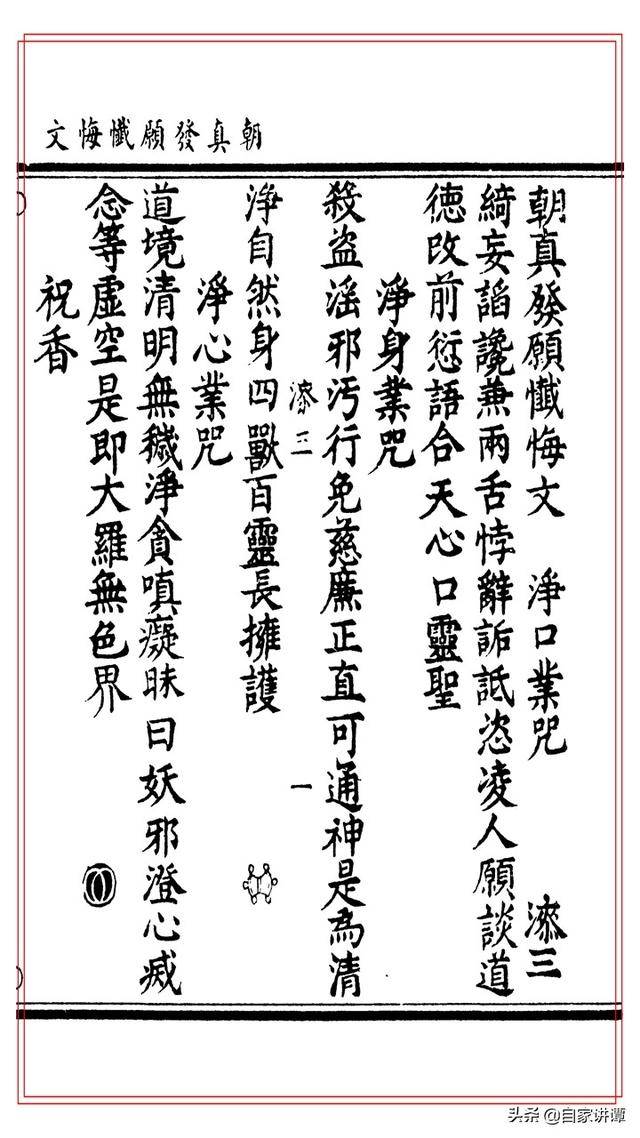 朝真發願懺悔文
朝真發願懺悔文 淨口業咒 㴝三
綺妄謟讒兼兩舌悖辭詬詆恣凌人願談道
德改前愆語合天心口靈聖
淨身業咒
殺盜滛邪汚行免慈廉正直可通神是為清
㴝三 一
淨自然身四獸百靈長擁護
淨心業咒
道境清明無穢淨貪嗔癡昧曰妖邪澄心滅
念等虛空是即大羅無色界
祝香
头条 @自家讲谭